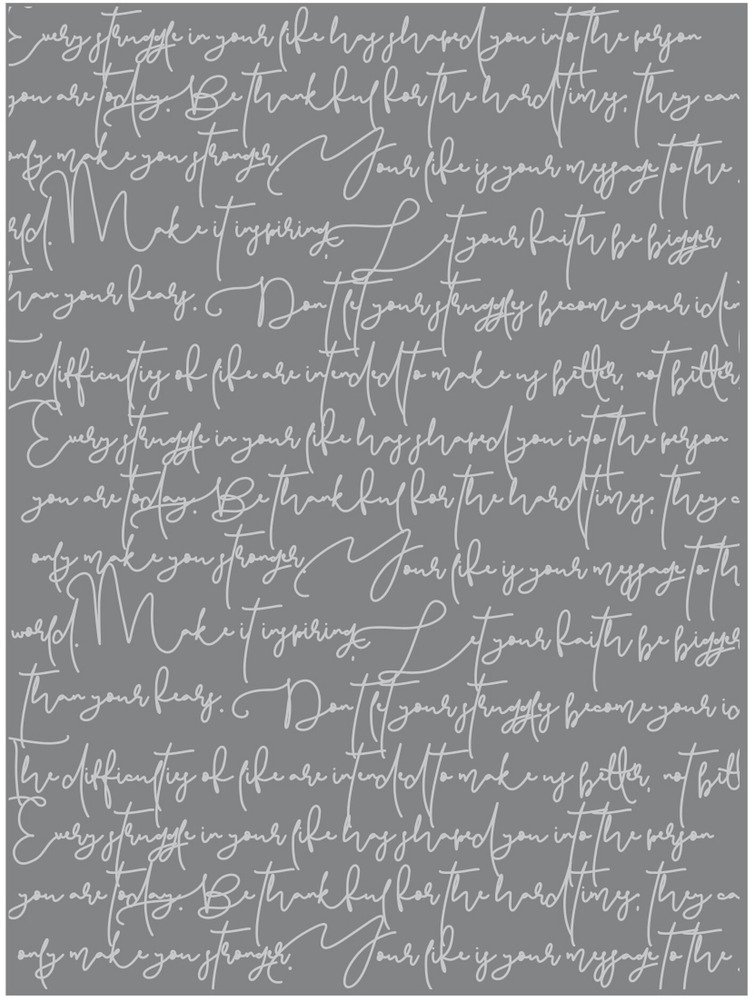 Every struggle in your life has shaped you into the person
you are today. Be thankful for the hard times, they can
only make you stronger. Your life is your message to the
rld. Make it inspiring. Let your faith be bigger
than your fears. Don't let your struggles become your iden
e difficulties of life are intended to make us better, not bitter
Every struggle in your life has shaped you into the person
you are today. Be thankful for the hard times, they c
only make you stronger. Your life is your message to th
world. Make it inspiring. Let your faith be bigger
than your fears. Don't let your struggles become your id
The difficulties of life are intended to make us better, not bitt
Every struggle in your life has shaped you into the person
you are today. Be thankful for the hard times, they ca
only make you stronger. Your life is your message to the